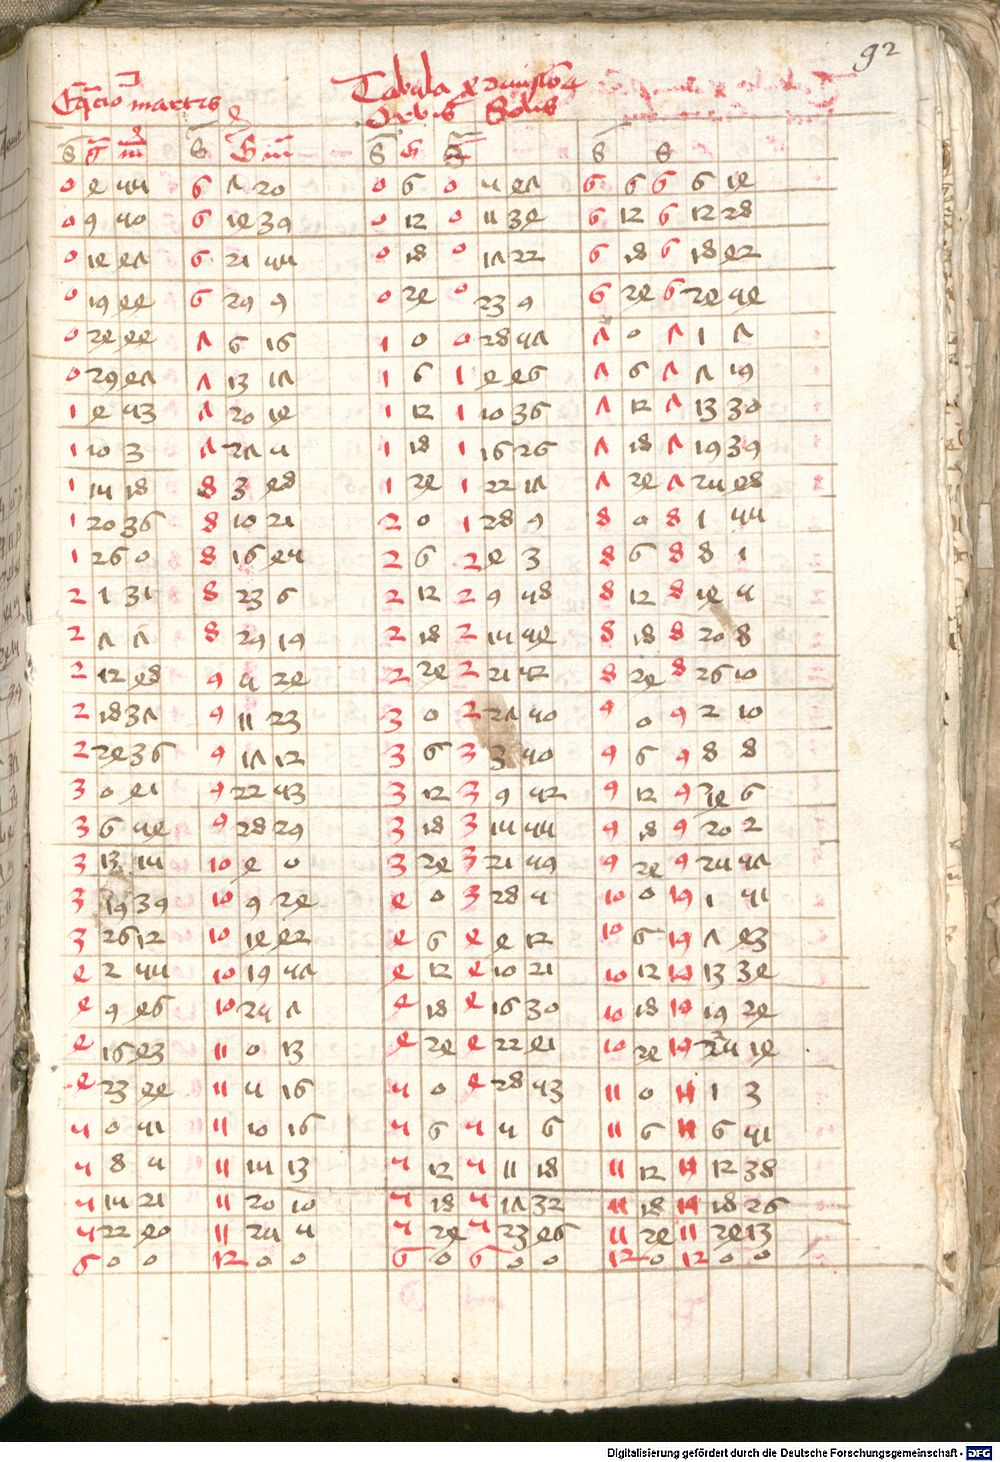 92
Eqacio martis Tabula
orbis Solis
S G m S G m S G S S S
0 4 55 6 7 20 0 6 0 5 47 6 6 6 6 14
0 9 50 6 14 39 0 12 0 11 34 6 12 6 12 28
0 14 47 6 21 55 0 18 0 17 22 6 18 6 18 42
0 19 44 6 29 9 0 24 0 23 9 6 24 6 24 54
0 24 44 7 6 16 1 0 0 28 57 7 0 7 1 7
0 29 47 7 13 17 1 6 1 4 46 7 6 7 7 19
1 4 53 7 20 14 1 12 1 10 36 7 12 7 13 30
1 10 3 7 27 5 1 18 1 16 26 7 18 7 19 39
1 15 18 8 3 48 1 24 1 22 17 7 24 7 25 48
1 20 36 8 10 21 2 0 1 28 9 8 0 8 1 55
1 26 0 8 16 45 2 6 2 4 3 8 6 8 8 1
2 1 31 8 23 6 2 12 2 9 58 8 12 8 14 5
2 7 7 8 29 19 2 18 2 15 54 8 18 8 20 8
2 12 48 9 5 24 2 24 2 21 52 8 24 8 26 10
2 18 37 9 11 23 3 0 2 27 50 9 0 9 2 10
2 24 36 9 17 12 3 6 3 3 50 9 6 9 8 8
3 0 41 9 22 53 3 12 3 9 52 9 12 9 14 6
3 6 54 9 28 29 3 18 3 15 55 9 18 9 20 2
3 13 15 10 4 0 3 24 3 21 59 9 24 9 25 57
3 19 39 10 9 24 4 0 3 28 5 10 0 10 1 51
3 26 12 10 14 42 4 6 4 4 12 10 6 10 7 43
4 2 55 10 19 57 4 12 4 10 21 10 12 10 13 34
4 9 46 10 25 7 4 18 4 16 30 10 18 10 19 24
4 16 43 11 0 13 4 24 4 22 41 10 24 10 25 14
4 23 44 11 5 16 5 0 4 28 53 11 0 11 1 3
5 0 51 11 10 16 5 6 5 5 6 11 6 11 6 51
5 8 5 11 15 13 5 12 5 11 18 11 12 11 12 38
5 15 21 11 20 10 5 18 5 17 32 11 18 11 18 26
5 22 40 11 25 5 5 24 5 23 46 11 24 11 24 13
6 0 0 12 0 0 6 0 6 0 0 12 0 12 0 0
Digitalisierung gefördert durch die Deutsche Forschungsgemeinschaft - DFG